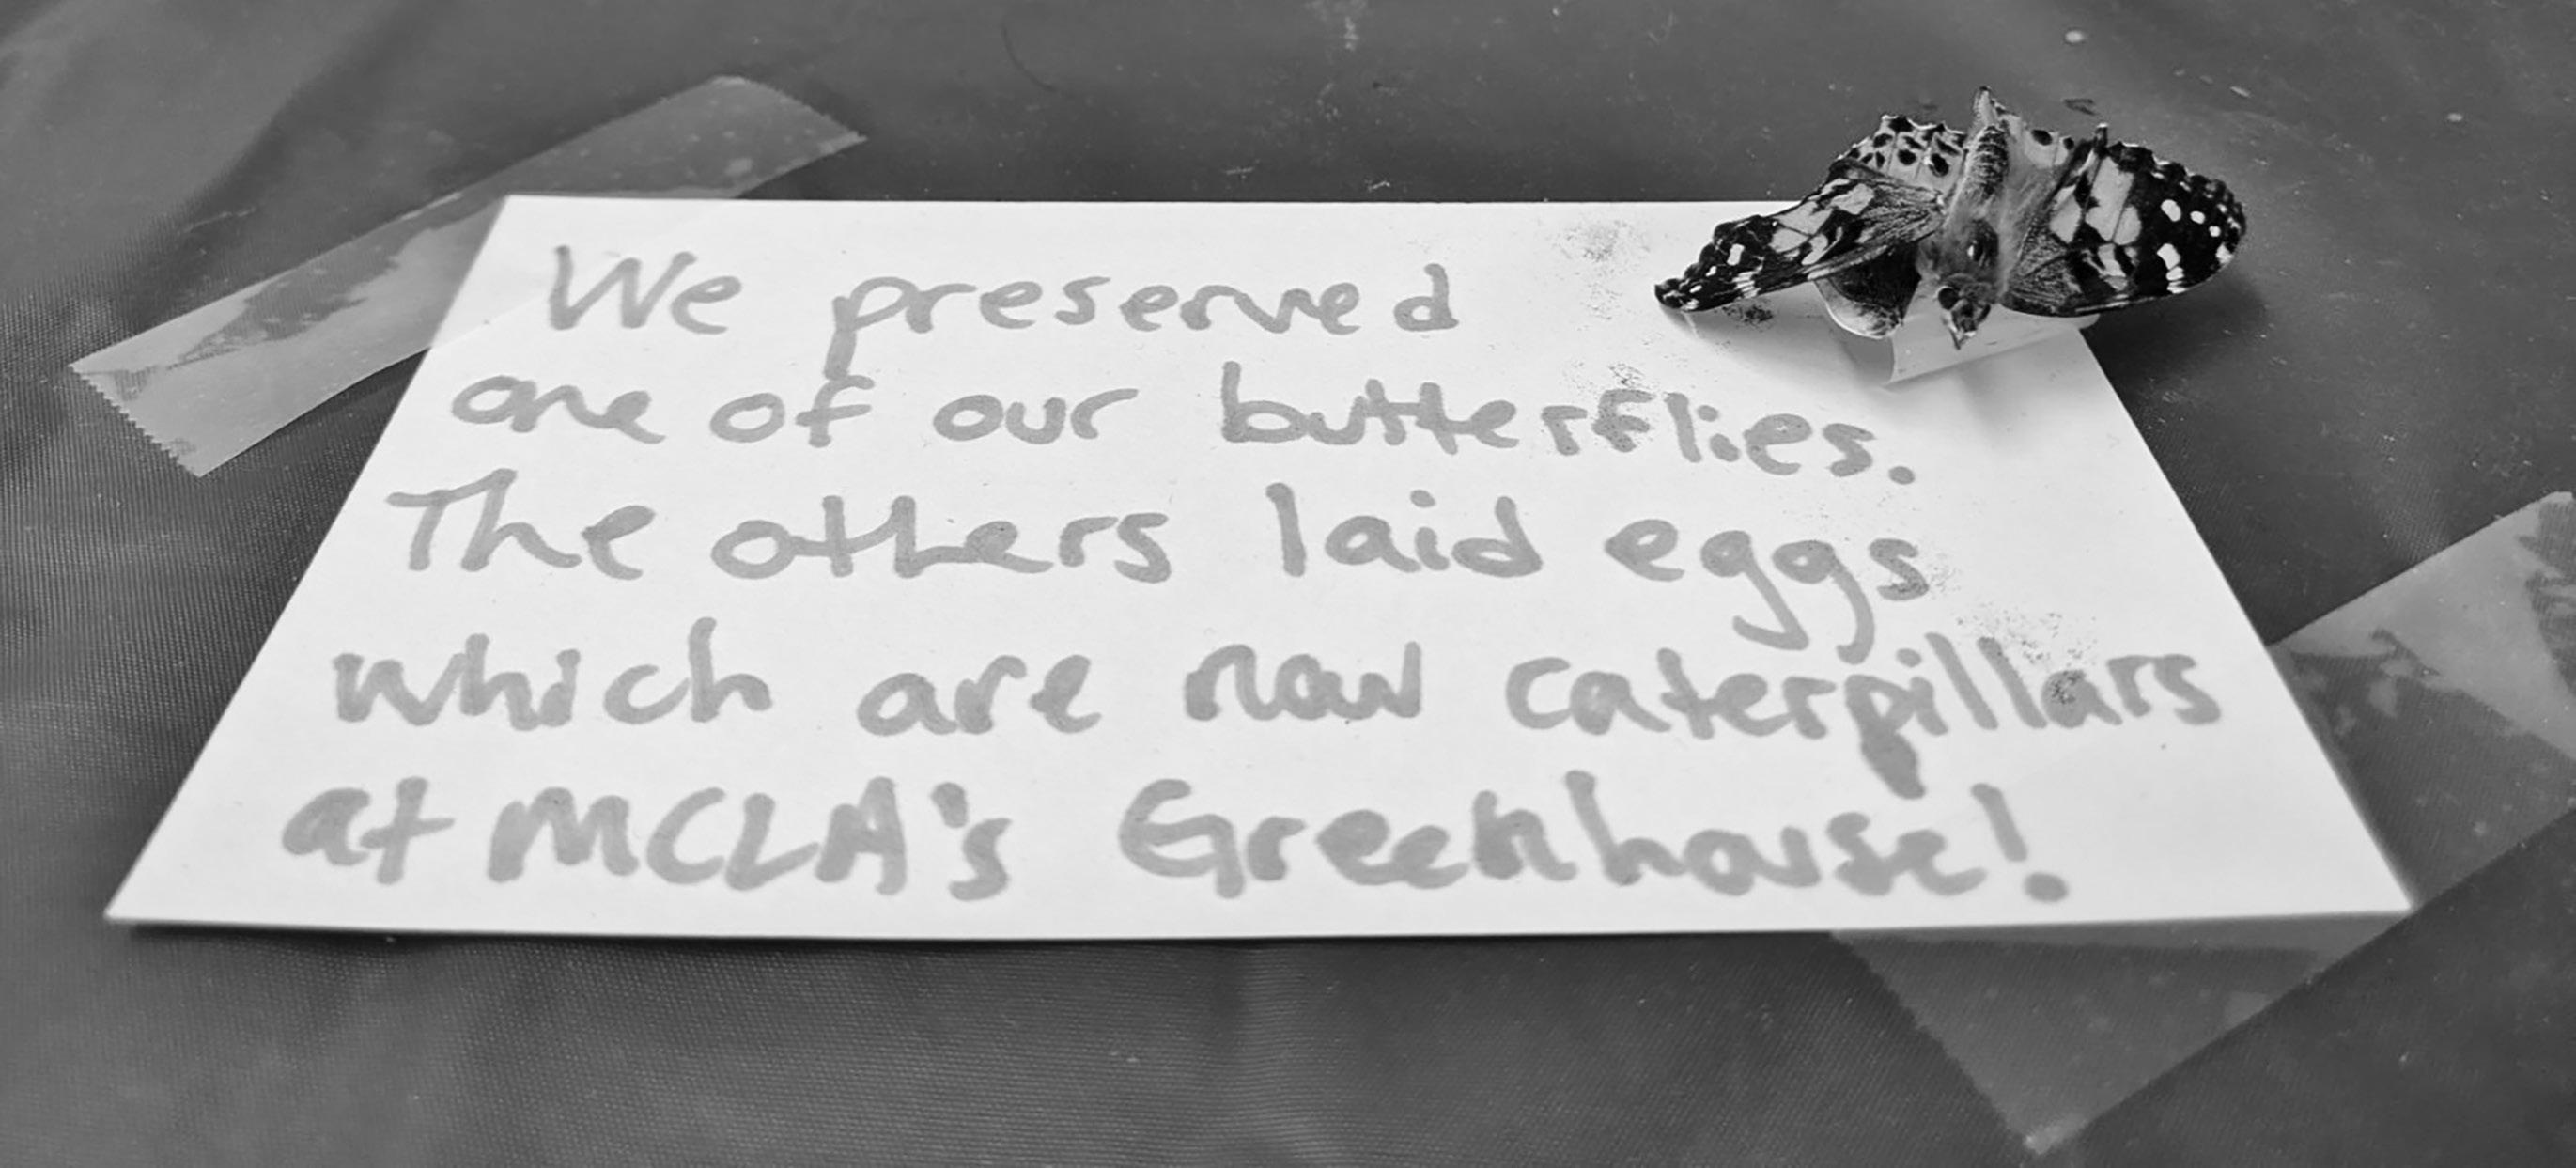 We preserved
one of our butterflies.
The others laid eggs
which are now caterpillars
at MCLA's Greenhouse!